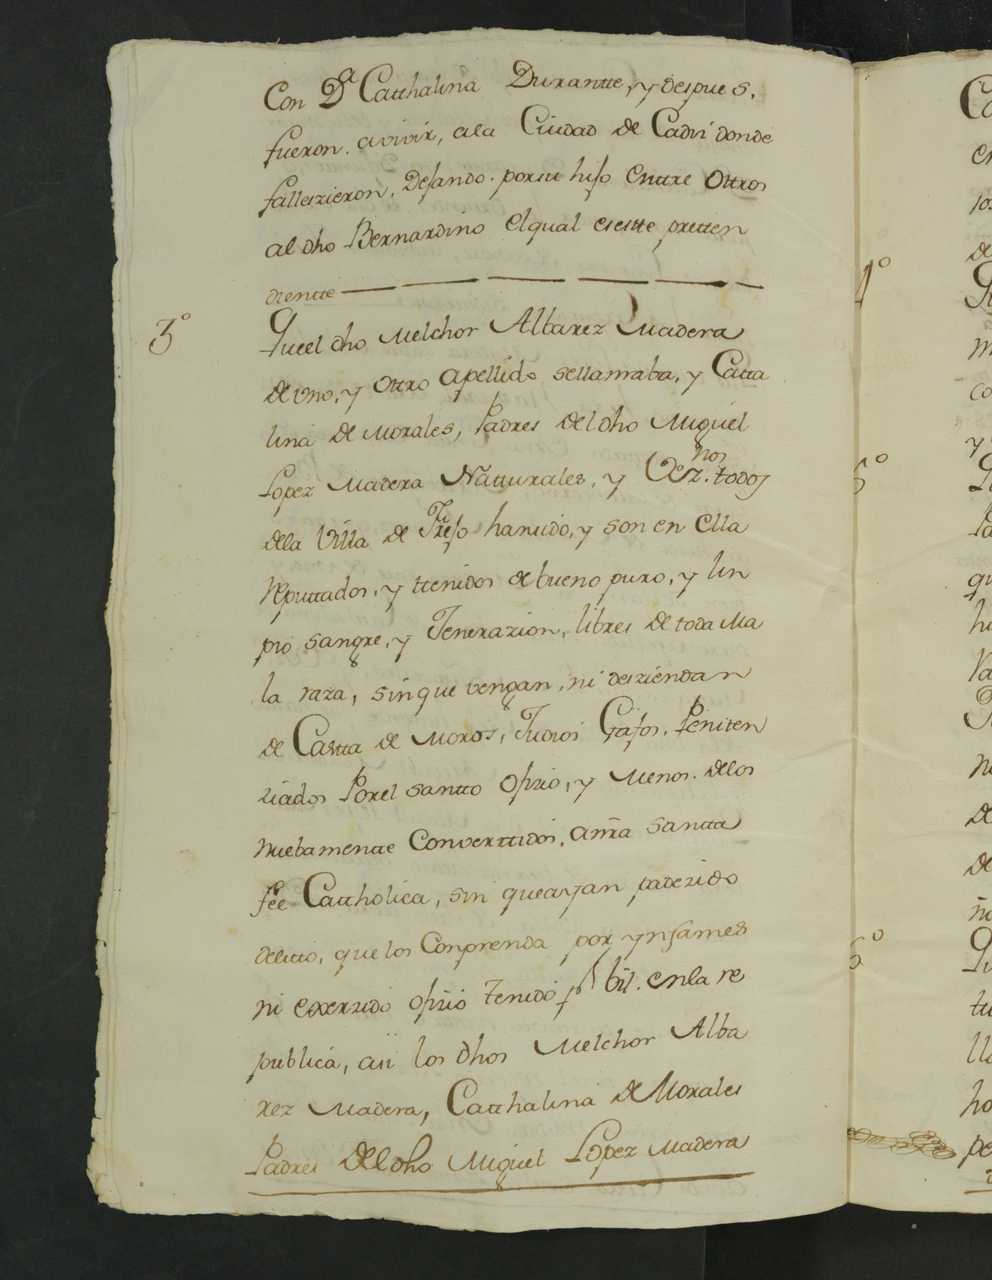 Con D.ª Catthalina Durantte, y despues,
fueron. avivir, ala Ciudad de Cadiz donde
fallezieron, Dejando. porsu hijo Enttre Ottros
al dho Bernardino elqual es este pretten
dientte
3º Queel dho Melchor Albarez Madera
de uno, y Ottro apellido sellamaba, y Catta
lina de Morales, Padres deldho Miguel
Lopez Madera Natturales, y Vez.nos todos
dela Villa de Trejo hansido, y son en ella
Reputtados, y ttenidos de bueno puro, y lin
pio sangre, y Jenerazion, libres de toda Ma
la raza, sinque vengan, ni desziendan
de Castta de Moros, Judios Gafos, Peniten
ziados Porel santto ofizio, y Menos. delos
nuebamentte Converttidos, anra santta
fee Cattholica, sin queayan padezido
delitto, que los Conprenda por ynfames
ni exerzido ofizio Tenido p.r bil. enla re
publica, asi los dhos Melchor Alba
rez Madera, Catthalina de Morales
Padres deldho Miguel Lopez Madera
Ca
en
de
4º
m
co
y
5º
Pa
qu
hi
de
de
6º
tu
ho
pe